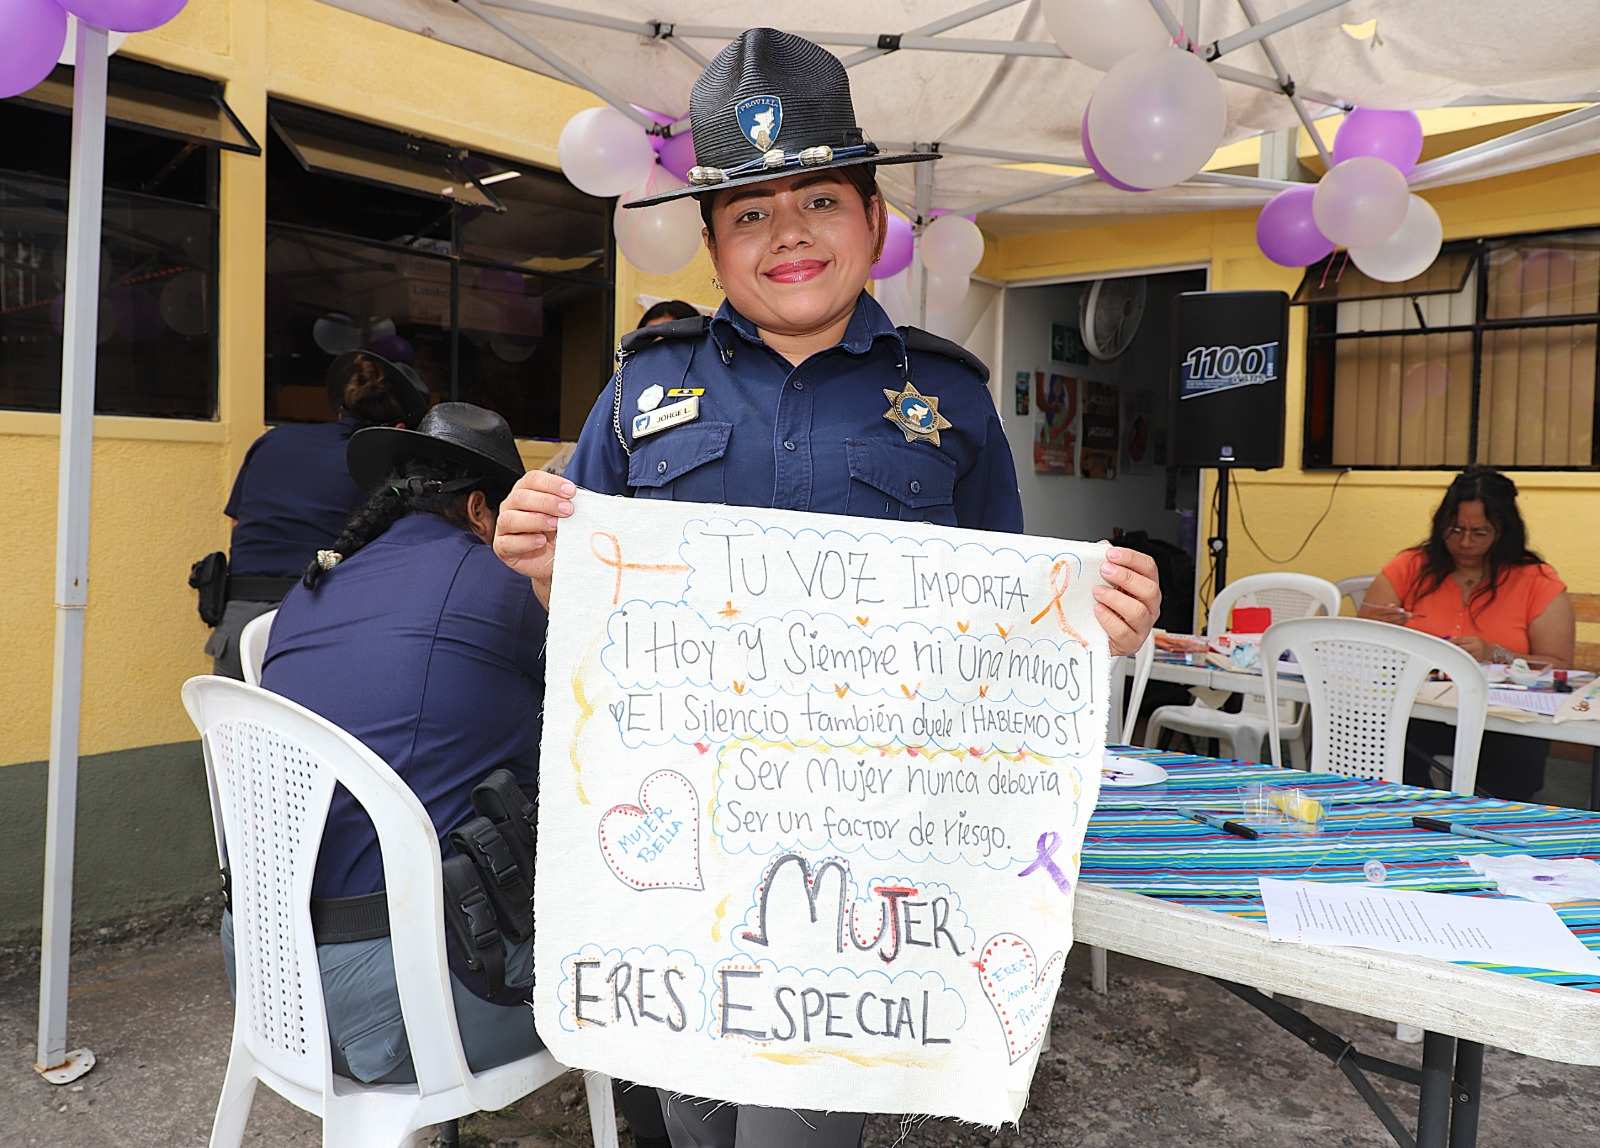 PROVIAL
JORGE L.
1100
TU VOZ IMPORTA
¡Hoy y Siempre ni una menos!
El Silencio también duele ¡HABLEMOS!
Ser Mujer nunca debería
Ser un factor de riesgo.
MUJER
BELLA
MUJER
ERES ESPECIAL
ERES